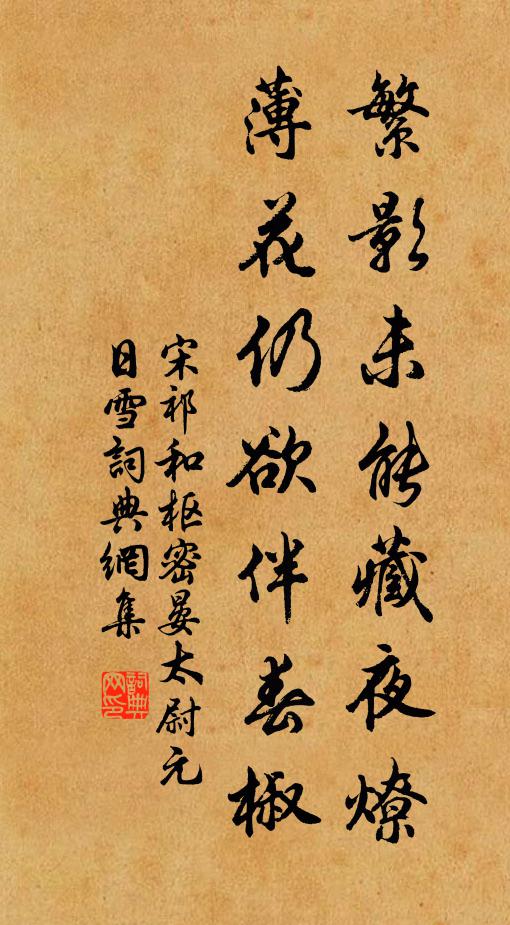 繁影未能藏夜燎
薄花仍欲伴春椒
宋祁和枢密晏太尉元
日雪詞典網集
詞典網印